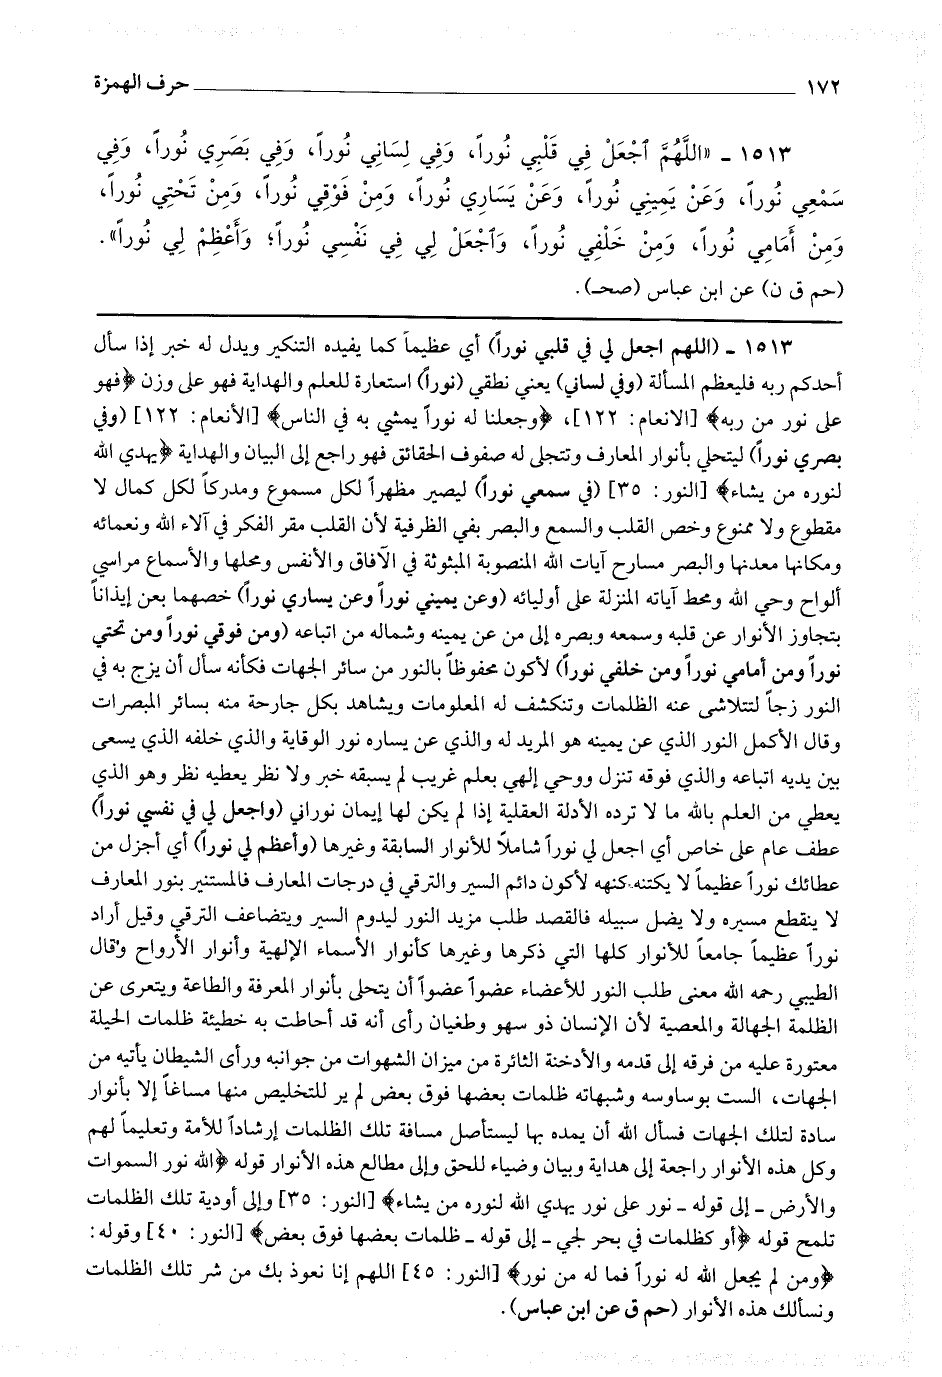 ١٧٢ حرف الهمزة
١٥١٣ ـ «اللَّهُمَّ ٱجْعَلْ فِي قَلْبِي نُوراً، وَفِي لِسَانِي نُوراً، وَفِي بَصَرِي نُوراً، وَفِي
سَمْعِي نُوراً، وَعَنْ يَمِينِي نُوراً، وَعَنْ يَسَارِي نُوراً، وَمِنْ فَوْقِي نُوراً، وَمِنْ تَحْتِي نُوراً،
وَمِنْ أَمَامِي نُوراً، وَمِنْ خَلْفِي نُوراً، وَٱجْعَلْ لِي فِي نَفْسِي نُوراً؛ وَأَعْظِمْ لِي نُوراً».
(حم ق ن) عن ابن عباس (صحـ).
١٥١٣ ـ (اللهم اجعل لي في قلبي نوراً) أي عظيماً كما يفيده التنكير ويدل له خبر إذا سأل
أحدكم ربه فليعظم المسألة (وفي لساني) يعني نطقي (نوراً) استعارة للعلم والهداية فهو على وزن ﴿فهو
على نور من ربه﴾ [الانعام: ١٢٢]، ﴿وجعلنا له نوراً يمشي به في الناس﴾ [الأنعام: ١٢٢] (وفي
بصري نوراً) ليتحلي بأنوار المعارف وتتجلى له صفوف الحقائق فهو راجع إلى البيان والهداية ﴿يهدي الله
لنوره من يشاء﴾ [النور: ٣٥] (في سمعي نوراً) ليصير مظهراً لكل مسموع ومدركاً لكل كمال لا
مقطوع ولا ممنوع وخص القلب والسمع والبصر بفي الظرفية لأن القلب مقر الفكر في آلاء الله ونعمائه
ومكانها معدنها والبصر مسارح آيات الله المنصوبة المبثوثة في الآفاق والأنفس ومحلها والأسماع مراسي
ألواح وحي الله ومحط آياته المنزلة على أوليائه (وعن يميني نوراً وعن يساري نوراً) خصهما بعن إيذاناً
بتجاوز الأنوار عن قلبه وسمعه وبصره إلى من عن يمينه وشماله من اتباعه (ومن فوقي نوراً ومن تحتي
نوراً ومن أمامي نوراً ومن خلفي نوراً) لأكون محفوظاً بالنور من سائر الجهات فكأنه سأل أن يزج به في
النور زجاً لتتلاشى عنه الظلمات وتنكشف له المعلومات ويشاهد بكل جارحة منه بسائر المبصرات
وقال الأكمل النور الذي عن يمينه هو المريد له والذي عن يساره نور الوقاية والذي خلفه الذي يسعى
بين يديه اتباعه والذي فوقه تنزل ووحي إلهي بعلم غريب لم يسبقه خبر ولا نظر يعطيه نظر وهو الذي
يعطي من العلم بالله ما لا ترده الأدلة العقلية إذا لم يكن لها إيمان نوراني (واجعل لي في نفسي نوراً)
عطف عام على خاص أي اجعل لي نوراً شاملاً للأنوار السابقة وغيرها (وأعظم لي نوراً) أي أجزل من
عطائك نوراً عظيماً لا يكتنه كنهه لأكون دائم السير والترقي في درجات المعارف فالمستنير بنور المعارف
لا ينقطع مسيره ولا يضل سبيله فالقصد طلب مزيد النور ليدوم السير ويتضاعف الترقي وقيل أراد
نوراً عظيماً جامعاً للأنوار كلها التي ذكرها وغيرها كأنوار الأسماء الإلهية وأنوار الأرواح وقال
الطيبي رحمه الله معنى طلب النور للأعضاء عضواً عضواً أن يتحلى بأنوار المعرفة والطاعة ويتعرى عن
الظلمة الجهالة والمعصية لأن الإنسان ذو سهو وطغيان رأى أنه قد أحاطت به خطيئة ظلمات الحيلة
معتورة عليه من فرقه إلى قدمه والأدخنة الثائرة من ميزان الشهوات من جوانبه ورأى الشيطان يأتيه من
الجهات، الست بوساوسه وشبهاته ظلمات بعضها فوق بعض لم ير للتخليص منها مساغاً إلا بأنوار
سادة لتلك الجهات فسأل الله أن يمده بها ليستأصل مسافة تلك الظلمات إرشاداً للأمة وتعليماً لهم
وكل هذه الأنوار راجعة إلى هداية وبيان وضياء للحق وإلى مطالع هذه الأنوار قوله ﴿الله نور السموات
والأرض ـ إلى قوله ـ نور على نور يهدي الله لنوره من يشاء﴾ [النور: ٣٥] وإلى أودية تلك الظلمات
تلمح قوله ﴿أو كظلمات في بحر لجي ـ إلى قوله ـ ظلمات بعضها فوق بعض﴾ [النور: ٤٠] وقوله:
﴿ومن لم يجعل الله له نوراً فما له من نور﴾ [النور: ٤٥] اللهم إنا نعوذ بك من شر تلك الظلمات
ونسألك هذه الأنوار (حم ق عن ابن عباس).